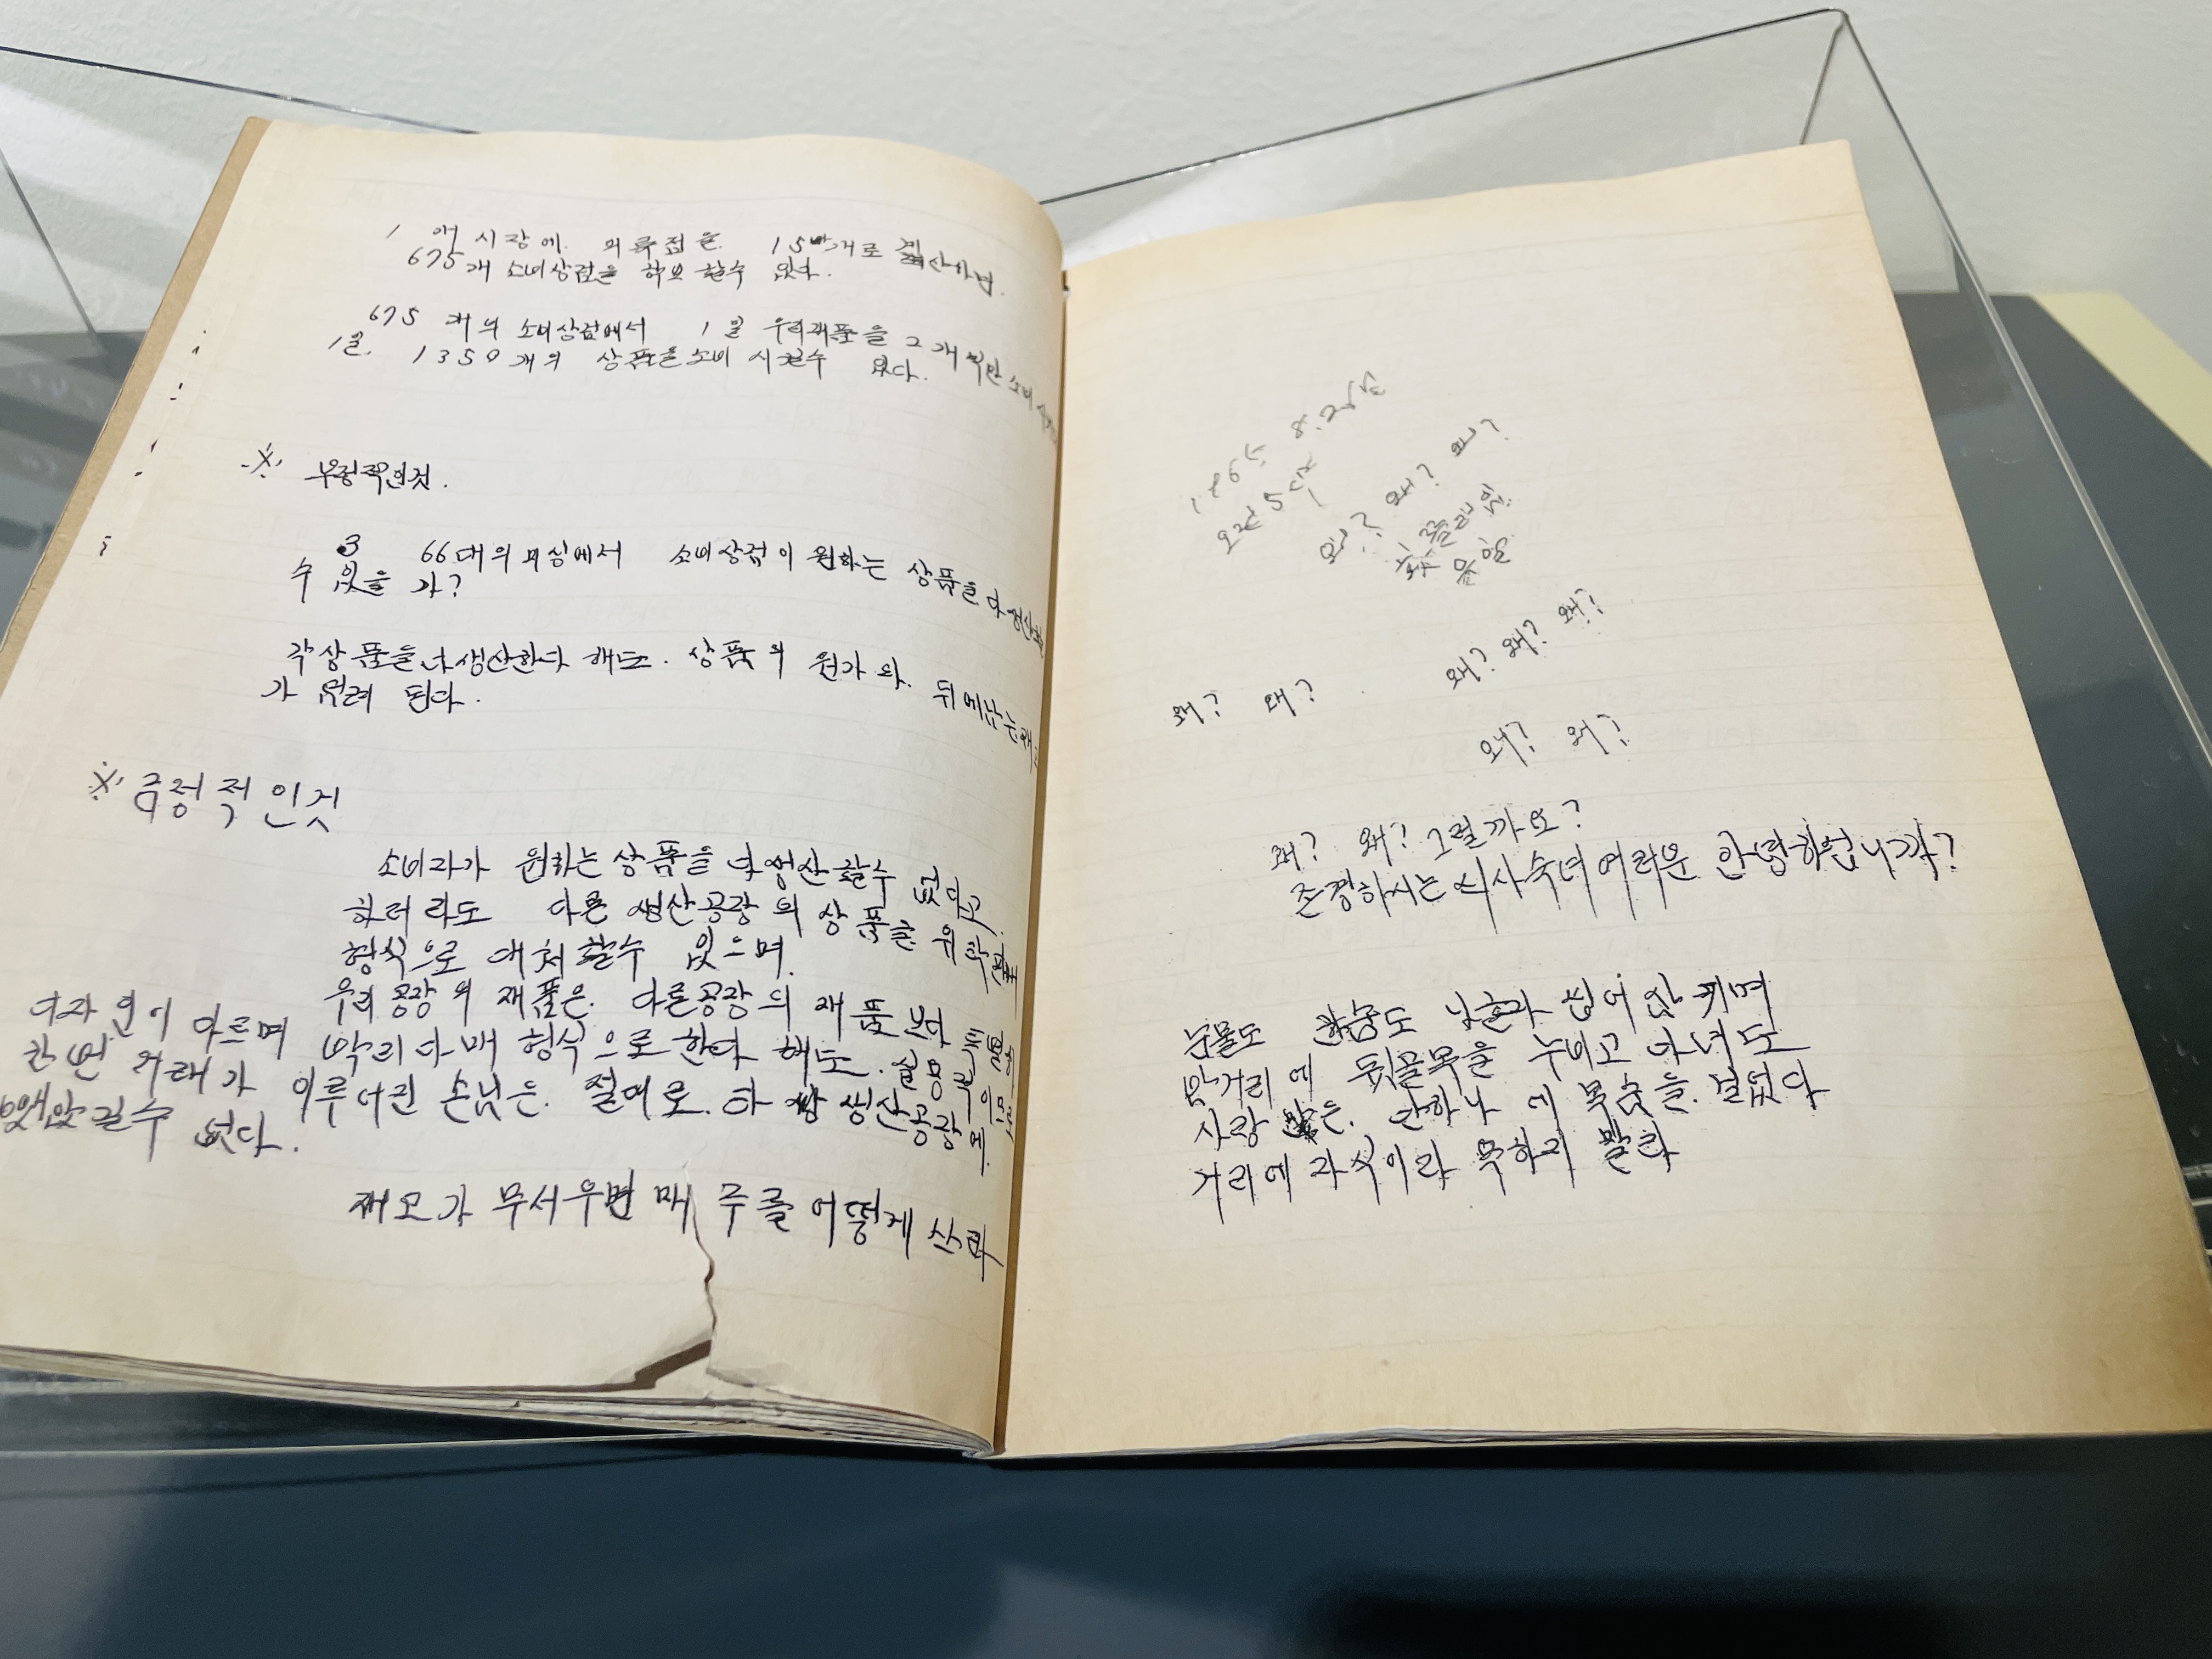 1 개 시장에 의류점을 15개로
675개 소비상점을 확보 할수 있다.
675 개의 소비상점에서 1일 우리재품을 2개 소비
1일. 1350개의 상품을 소비 시킬수 있다.
※ 부정적인것.
3 66대의 미싱에서 소비상점이 원하는 상품을 다 생산할
수 있을 가?
각상품을 다생산한다 해도. 상품의 원가와. 뒤에남는
가 염려 된다.
※ 긍정적인것
소비자가 원하는 상품을 다생산 할수 없다고
하더라도 다른 생산공장의 상품을 위탁판매
형식으로 대처 할수 있으며.
우리공장의 재품은. 다른공장의 재품 보다
디자인이 다르며 박리다매 형식으로 한다 해도.
한번 거래가 이루어진 손님은. 절대로. 타 생산공장에.
빼앗길수 없다.
재모가 무서우면 매주를 어떻게 쓰랴
1965 8.25일
오전 5시
왜? 왜? 왜?
왜? 왜? 왜?
왜? 왜?
왜? 왜?
왜? 왜? 그럴까요?
존경하시는 신사숙녀 여러운 안녕하업니까?
눈물도 한숨도 나혼자 씹어삼키며
밤거리에 뒷골목을 누비고 다녀도
사랑은. 단하나에 목숨을. 걸었다
거리에 자식이라 욕하지 말라